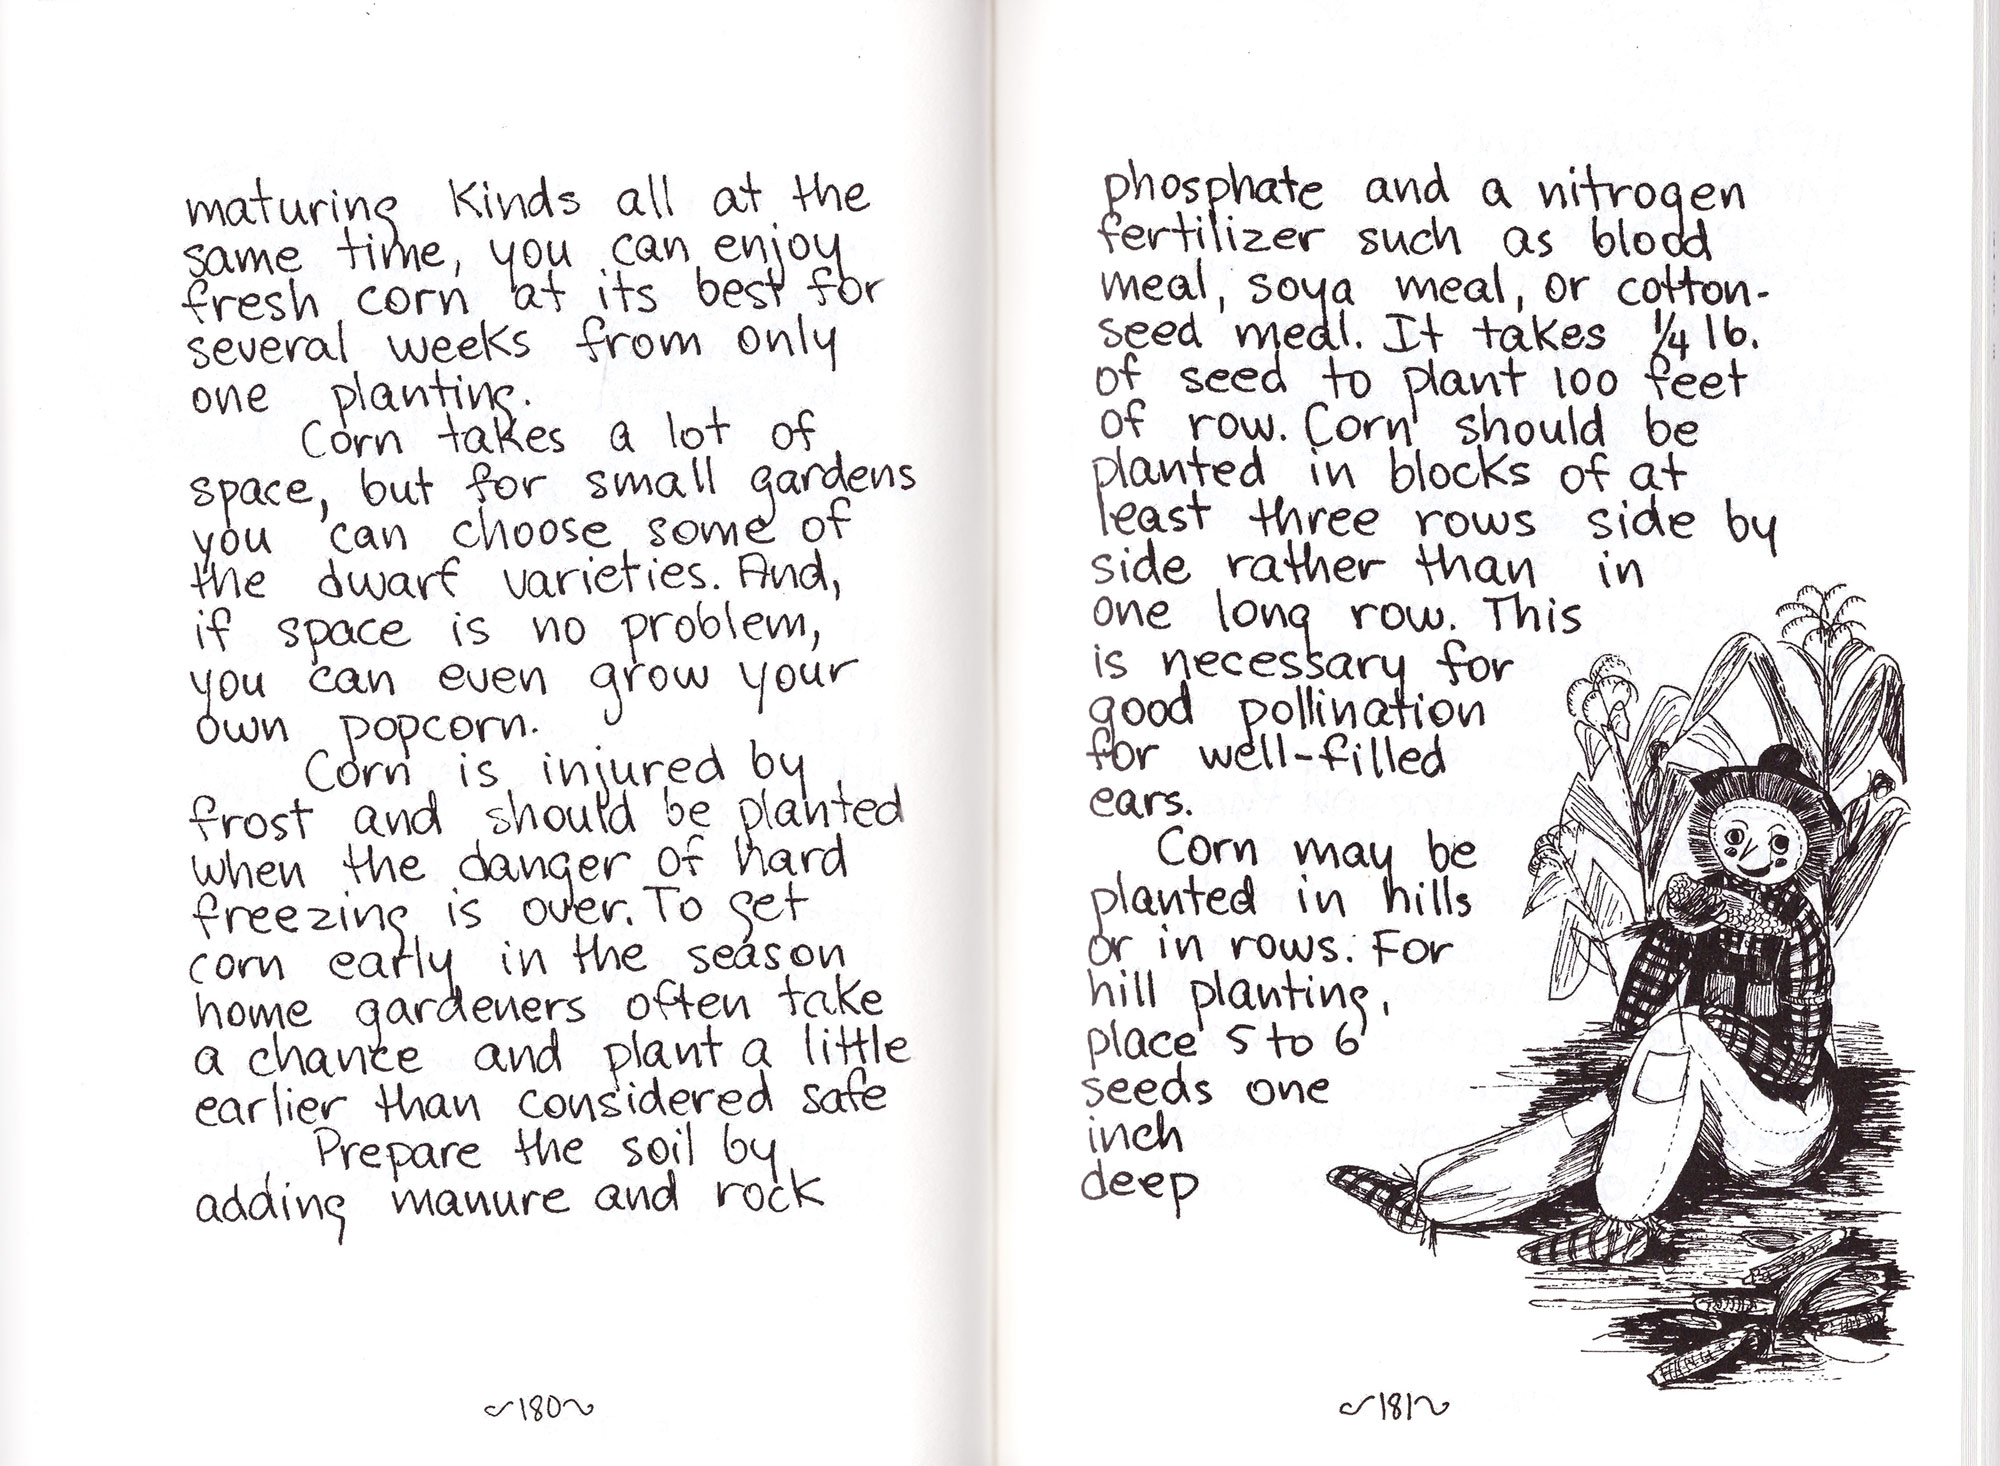 maturing kinds all at the
same time, you can enjoy
fresh corn at its best for
several weeks from only
one planting.
Corn takes a lot of
space, but for small gardens
you can choose some of
the dwarf varieties. And,
if space is no problem,
you can even grow your
own popcorn.
Corn is injured by
frost and should be planted
when the danger of hard
freezing is over. To get
corn early in the season
home gardeners often take
a chance and plant a little
earlier than considered safe
Prepare the soil by
adding manure and rock
~180~
phosphate and a nitrogen
fertilizer such as blood
meal, soya meal, or cotton-
seed meal. It takes 1/4 lb.
of seed to plant 100 feet
of row. Corn should be
planted in blocks of at
least three rows side by
side rather than in
one long row. This
is necessary for
good pollination
for well-filled
ears.
Corn may be
planted in hills
or in rows. For
hill planting,
place 5 to 6
seeds one
inch
deep
~181~